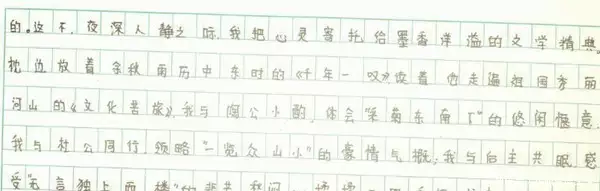 的。这不,夜深人静之际,我把心灵寄托给墨香洋溢的文学精典。
枕边放着余秋雨历中东时的《千年一叹》,读着他走遍祖国秀丽
河山的《文化苦旅》,我与陶公小酌,体会"采菊东南下"的悠闲惬意,
我与杜公同行,领略"一览众山小"的豪情气概;我与后主共眠,感
受"无言独上西楼"的悲